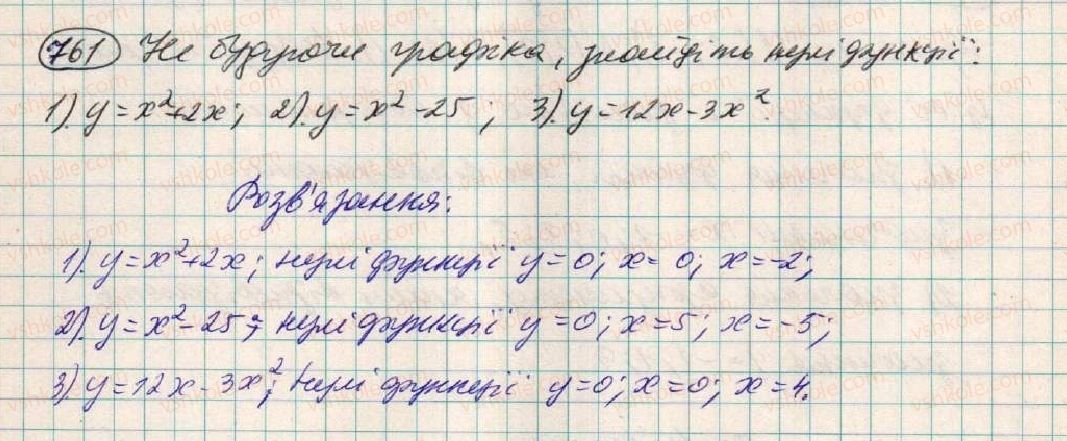 761 Не будуючи графіка, знайдіть нулі функції:
1). y = x²+2x; 2). y = x² -25; 3). y = 12x - 3x².
Розв'язання:
1). y = x²+2x; нулі функції y = 0; x = 0; x = -2;
2). y = x² - 25; нулі функції y = 0; x = 5; x = -5;
3) y = 12x - 3x²; нулі функції y = 0; x = 0; x = 4.